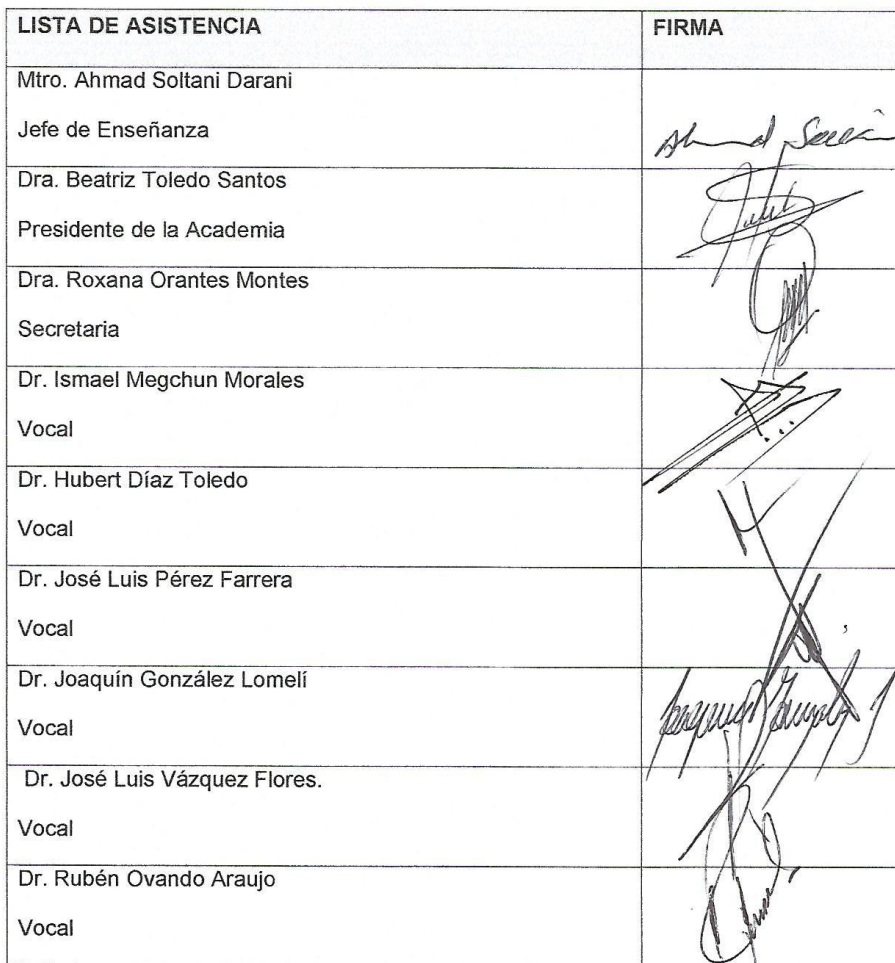 LISTA DE ASISTENCIA FIRMA
Mtro. Ahmad Soltani Darani
Jefe de Enseñanza
Ahmad
Dra. Beatriz Toledo Santos
Presidente de la Academia
Dra. Roxana Orantes Montes
Secretaria
Dr. Ismael Megchun Morales
Vocal
Dr. Hubert Díaz Toledo
Vocal
Dr. José Luis Pérez Farrera
Vocal
Dr. Joaquín González Lomelí
Vocal
Dr. José Luis Vázquez Flores.
Vocal
Dr. Rubén Ovando Araujo
Vocal